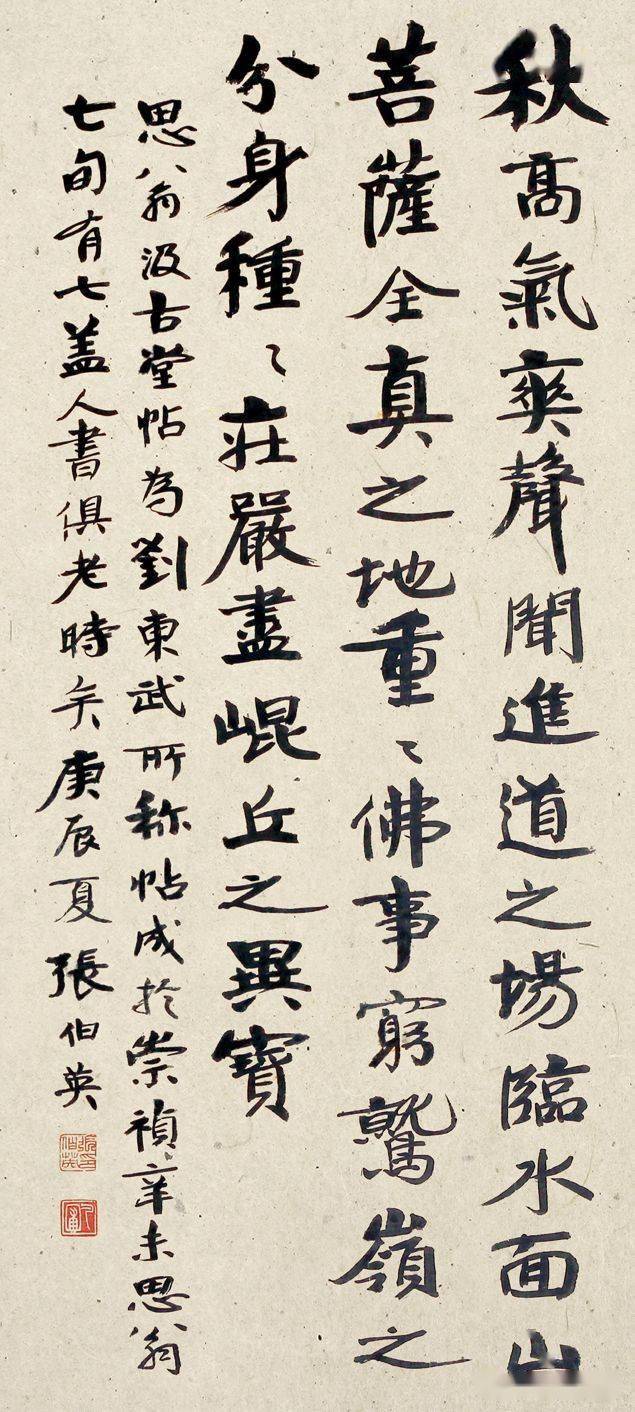 秋高氣爽聲聞進道之場臨水面山
菩薩全真之地重〻佛事窮鷲嶺之
分身種〻莊嚴盡崐丘之異寶
思翁汲古堂帖為劉東武所称帖成於崇禎辛未思翁
七旬有七盖人書俱老時矣庚辰夏張伯英